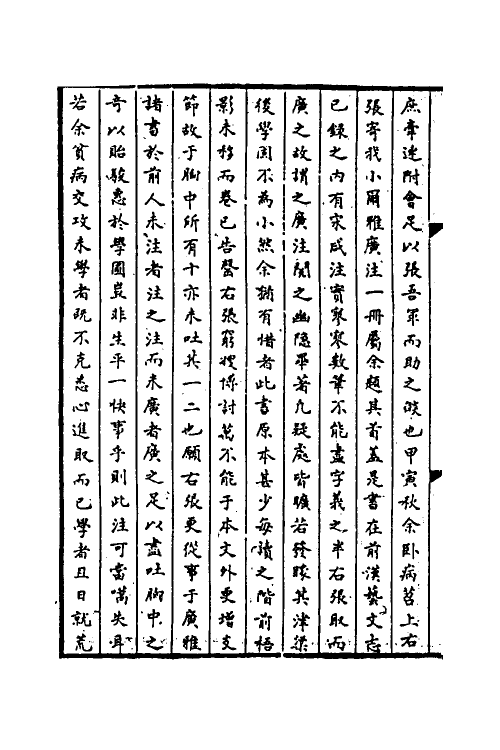 庶牽連附會足以張吾軍而助之燄也甲寅秋余卧病苕上右
張寄我小爾雅廣注一冊屬余題其首蓋是書在前漢藝文志
已錄之内有宋咸注實寥寥數筆不能盡字義之半右張取而
廣之故謂之廣注閱之幽隱畢著凡疑處皆曠若發矇其津梁
後學固不為小然余猶有惜者此書原本甚少每讀之階前梧
影未移而卷已告罄右張窮搜博討萬不能于本文外更增支
節故于胸中所有十亦未吐其一二也願右張更從事于廣雅
諸書於前人未注者注之注而未廣者廣之足以盡吐胸中之
奇以貽駿惠於學圃豈非生平一快事乎則此注可當嚆矢耳
若余貧病交攻未學者既不克悉心進取而已學者且日就荒